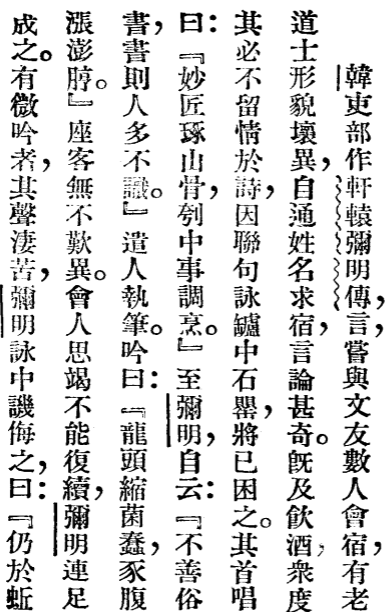 韓吏部作軒轅彌明傳，言，嘗與文友數人會宿，有老
道士形貌壞異，自通姓名求宿，言論甚奇。旣及飮酒，衆度
其必不留情於詩，因聯句詠鑪中石罌，將已困之。其首唱
曰：『妙匠琢山骨，刳中事調烹。』至彌明，自云：『不善俗
書，書則人多不識。』遣人執筆。吟曰：『龍頭縮菌蠢，豕腹
漲澎脝。』座客無不歎異。會人思竭不能復續，彌明連足
成之。有微吟者，其聲淒苦，彌明詠中譏侮之，曰：『仍於蚯